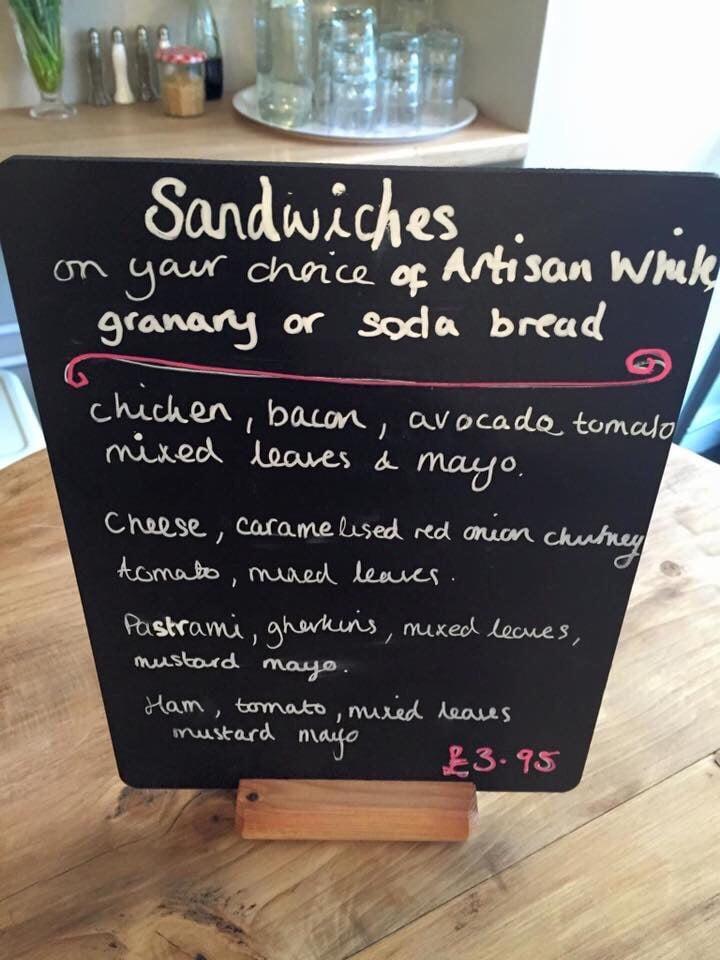 Sandwiches
on your choice of Artisan White,
granary or soda bread
chicken, bacon, avocado tomato
mixed leaves & mayo.
Cheese, caramelised red onion chutney
tomato, mixed leaves.
Pastrami, gherkins, mixed leaves,
mustard mayo.
Ham, tomato, mixed leaves
mustard mayo
£3.95